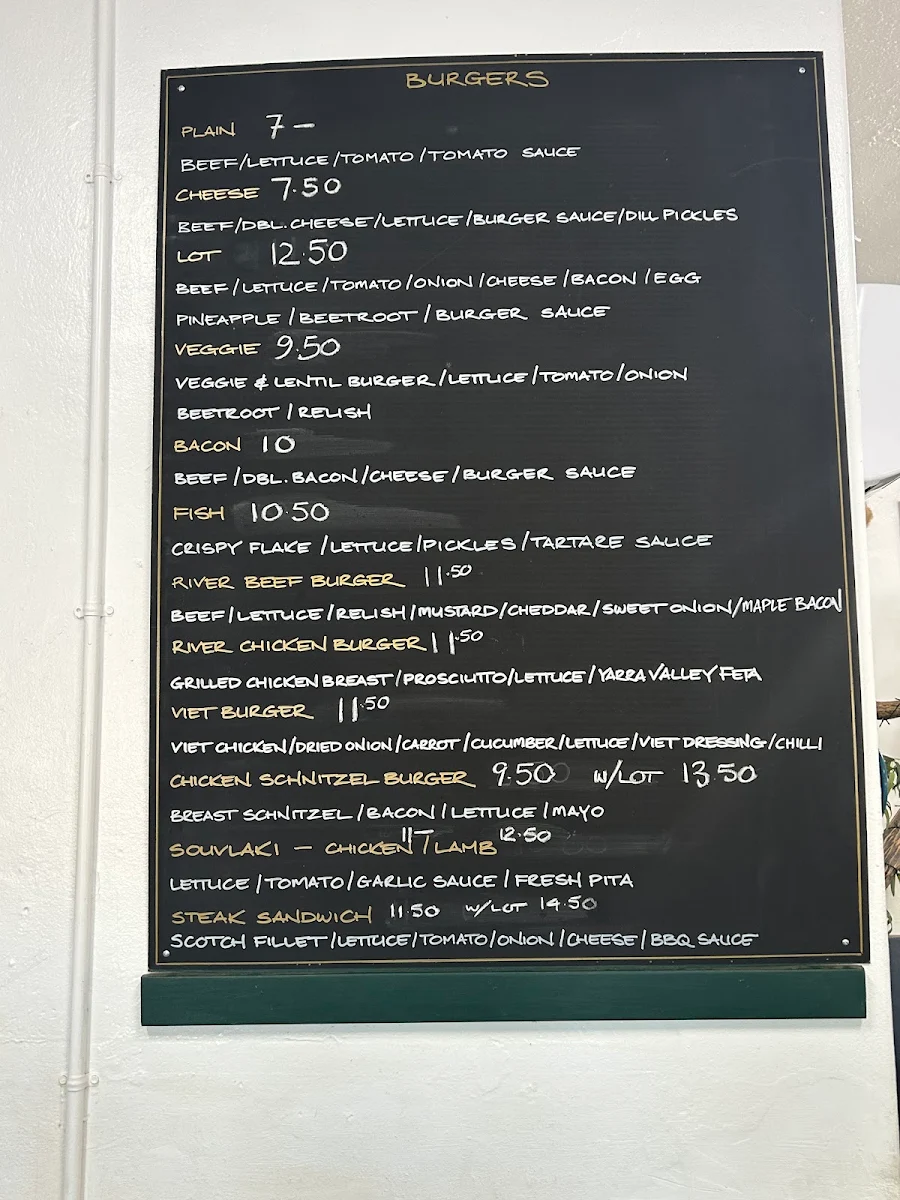 BURGERS
PLAIN 7 —
BEEF/LETTUCE/TOMATO/TOMATO SAUCE
CHEESE 7.50
BEEF/DBL.CHEESE/LETTUCE/BURGER SAUCE/DILL PICKLES
LOT 12.50
BEEF/LETTUCE/TOMATO/ONION/CHEESE/BACON/EGG
PINEAPPLE/BEETROOT/BURGER SAUCE
VEGGIE 9.50
VEGGIE & LENTIL BURGER/LETTUCE/TOMATO/ONION
BEETROOT/RELISH
BACON 10
BEEF/DBL.BACON/CHEESE/BURGER SAUCE
FISH 10.50
CRISPY FLAKE/LETTUCE/PICKLES/TARTARE SAUCE
RIVER BEEF BURGER 11.50
BEEF/LETTUCE/RELISH/MUSTARD/CHEDDAR/SWEET ONION/MAPLE BACON
RIVER CHICKEN BURGER 11.50
GRILLED CHICKEN BREAST/PROSCIUTTO/LETTUCE/YARRA VALLEY FETA
VIET BURGER 11.50
VIET CHICKEN/DRIED ONION/CARROT/CUCUMBER/LETTUCE/VIET DRESSING/CHILLI
CHICKEN SCHNITZEL BURGER 9.50 W/LOT 13.50
BREAST SCHNITZEL/BACON/LETTUCE/MAYO
11— 12.50
SOUVLAKI — CHICKEN/LAMB
LETTUCE/TOMATO/GARLIC SAUCE/FRESH PITA
STEAK SANDWICH 11.50 W/LOT 14.50
SCOTCH FILLET/LETTUCE/TOMATO/ONION/CHEESE/BBQ SAUCE